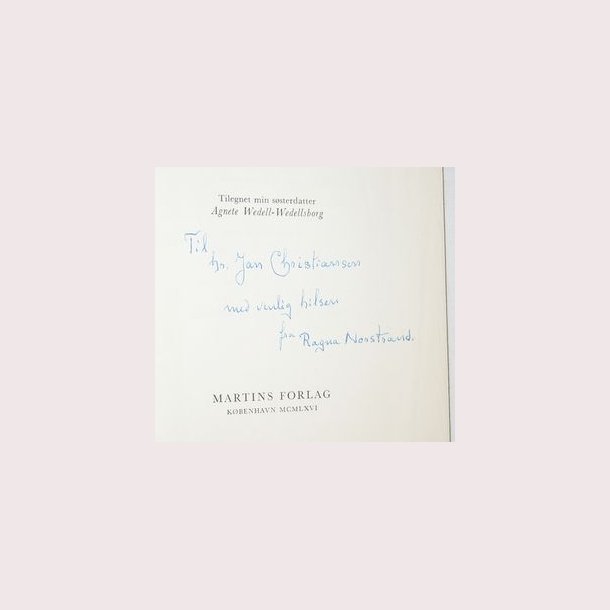 Tilegnet min søsterdatter
Agnete Wedell-Wedellsborg
Til
hr. Jan Christiansen
med venlig hilsen
fra Ragna Norstrand.
MARTINS FORLAG
KØBENHAVN MCMLXVI